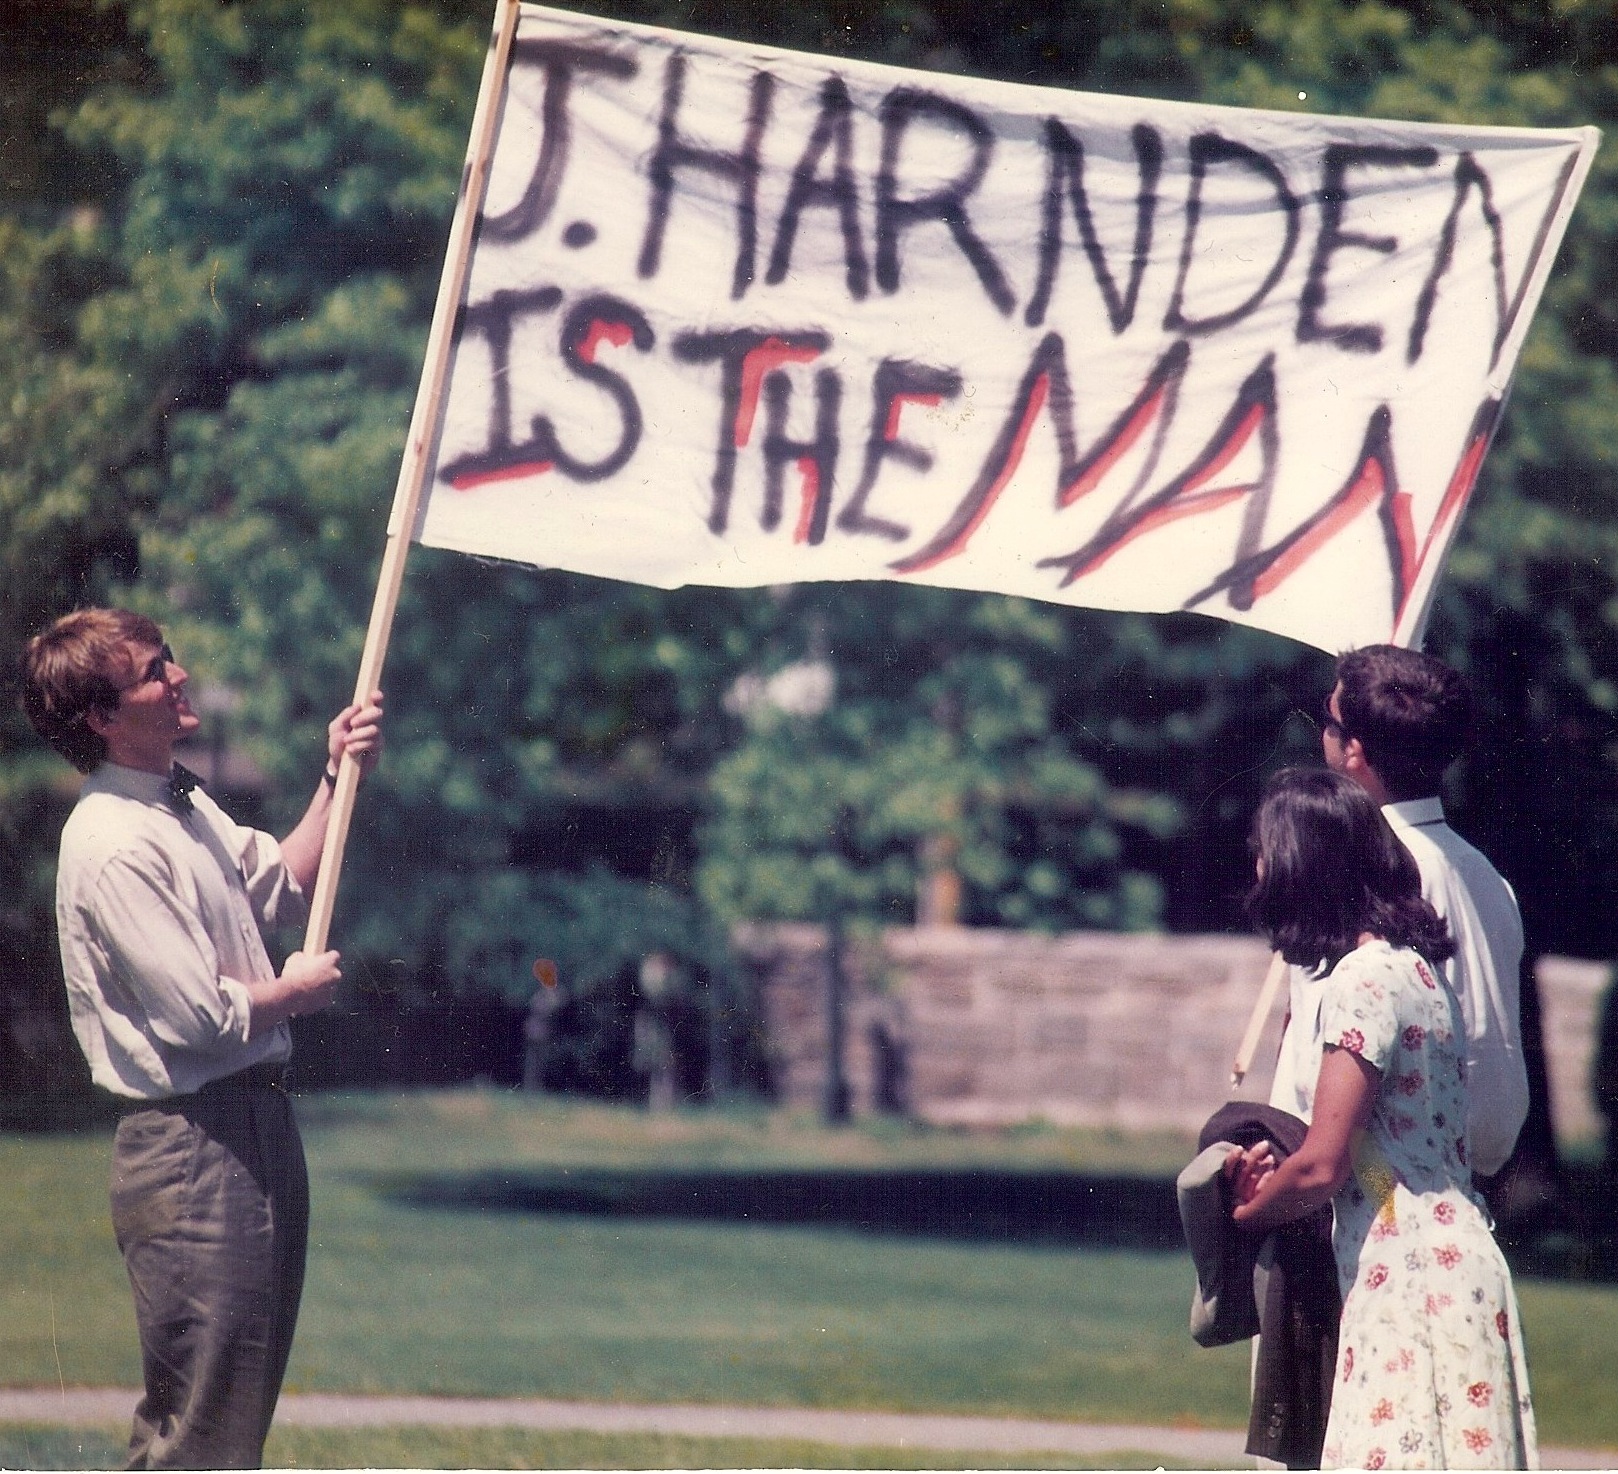 J. HARNDEN
IS THE MAN